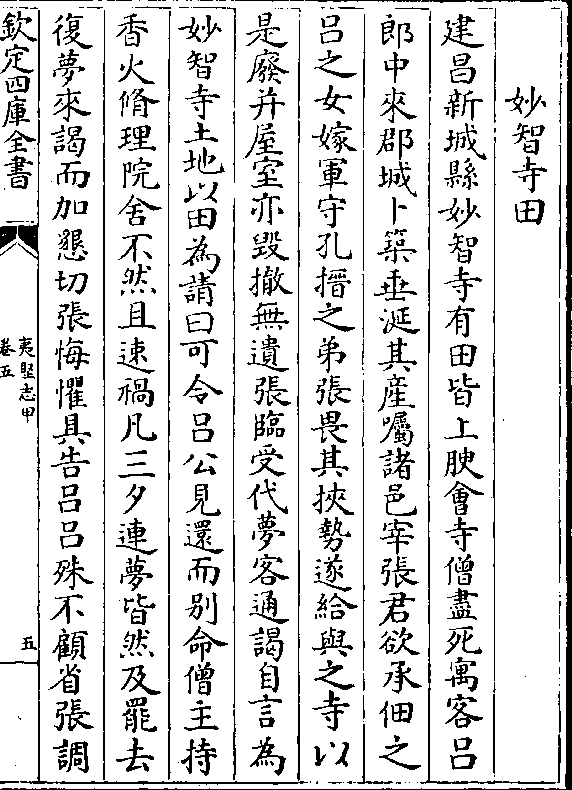 妙智寺田
建昌新城縣妙智寺有田皆上腴會寺僧盡死寓客呂
郎中來郡城卜築垂涎其産囑諸邑宰張君欲承佃之
呂之女嫁軍守孔搢之弟張畏其挾勢遂給與之寺以
是廢并屋室亦毀撤無遺張臨受代夢客通謁自言為
妙智寺土地以田為請曰可令呂公見還而别命僧主持
香火脩理院舍不然且速禍凡三夕連夢皆然及罷去
復夢來謁而加懇切張悔懼具告呂呂殊不顧省張調
欽定四庫全書
夷堅志甲
卷五
五